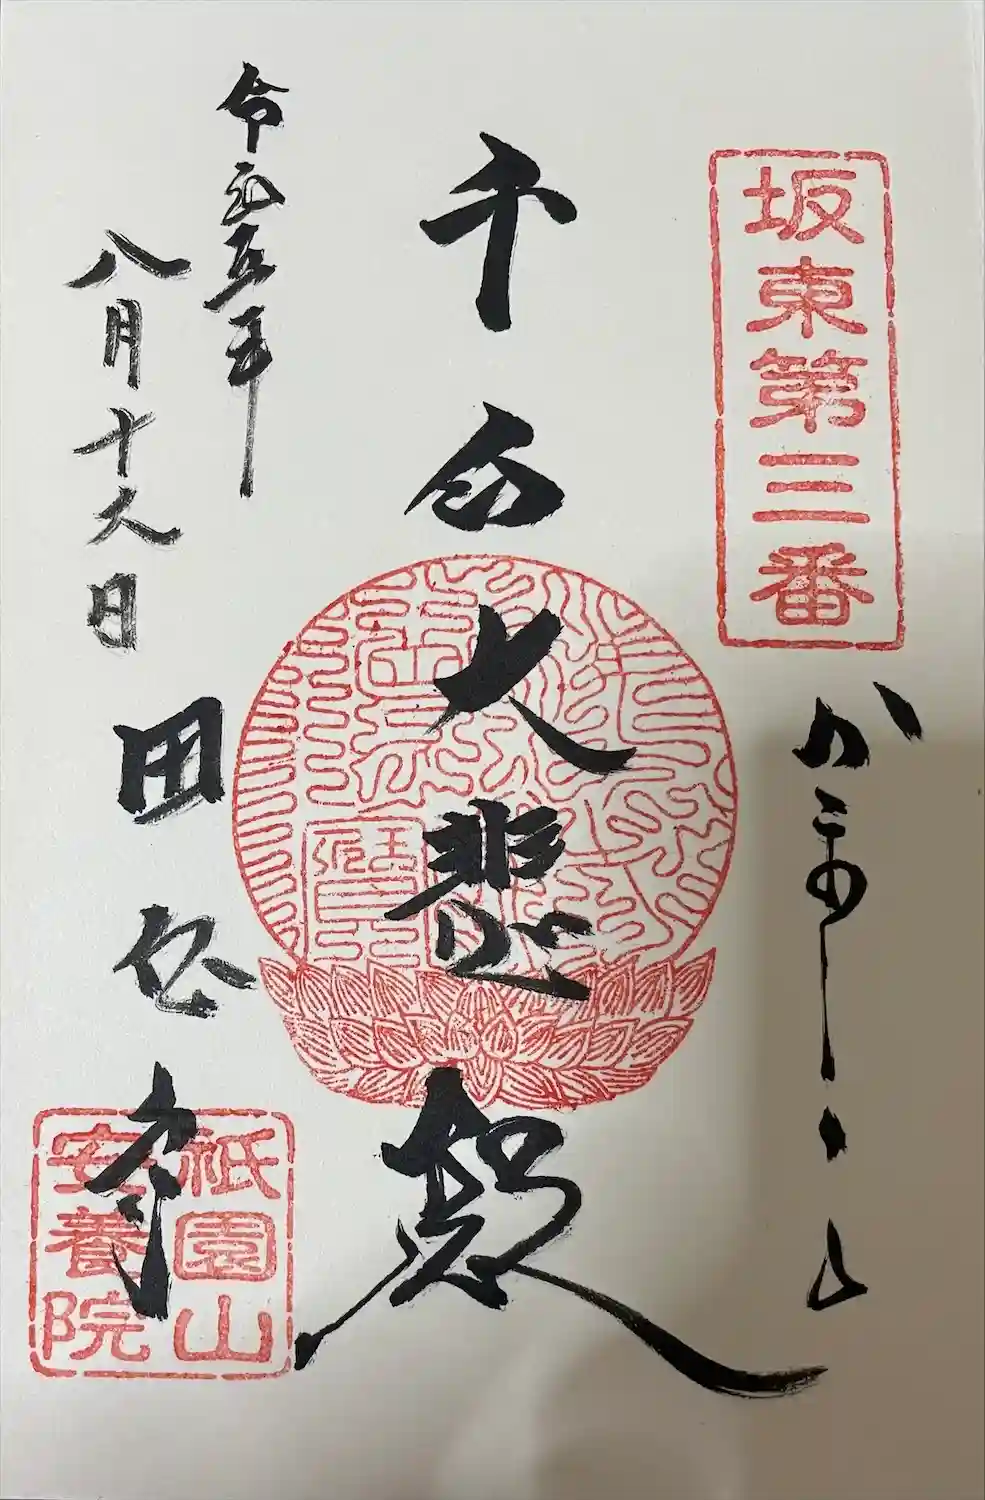 坂東第三番
かまくら山
千手大悲殿
令和五年
八月十九日
田代寺
祇園山
安養院